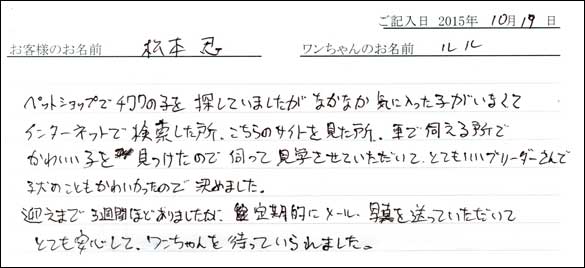 ご記入日 2015年 10月 19 日
お客様のお名前 松本 忍 ワンちゃんのお名前 ルル
ペットショップでチワワの子を探していましたがなかなか気に入った子がいなくて
インターネットで検索した所、こちらのサイトを見た所、車で伺える所で
かわいい子を見つけたので伺って見学させていただいて、とてもいいブリーダーさんで
子犬のこともかわいかったので決めました。
迎えまで3週間ほどありましたが定期的にメール、写真を送っていただいて
とても安心して、ワンちゃんを待っていられました。